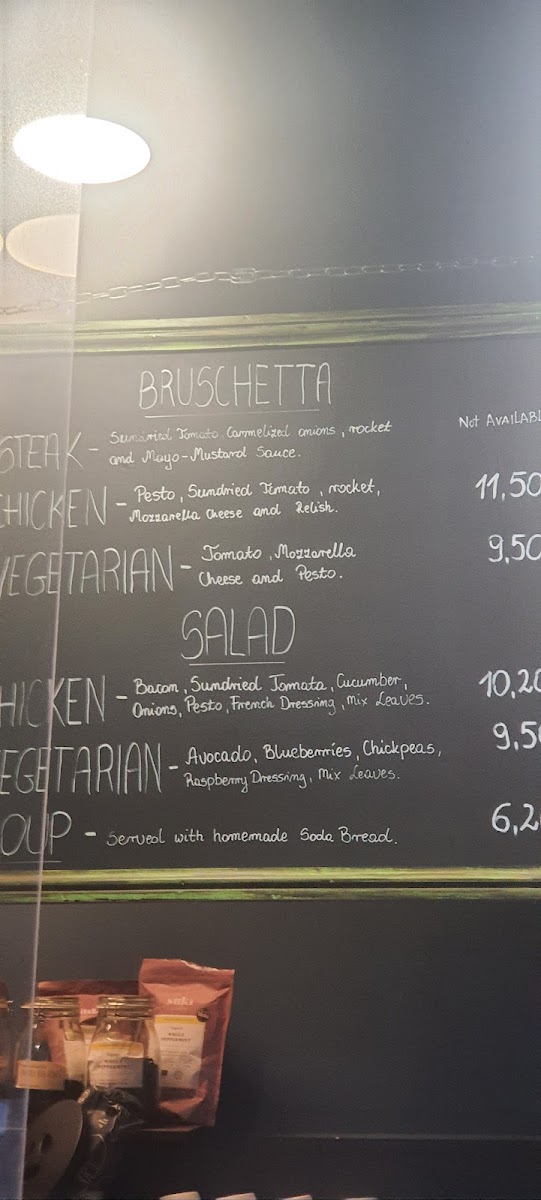 BRUSCHETTA
STEAK - Sundried Tomato, Carmelized onions, rocket
and Mayo-Mustard Sauce.
Not AVAILABL
CHICKEN - Pesto, Sundried Tomato, rocket,
Mozzarella Cheese and Relish.
11,50
VEGETARIAN - Tomato, Mozzarella
Cheese and Pesto.
9,50
SALAD
HICKEN - Bacon, Sundried Tomata, Cucumber,
Onions, Pesto, French Dressing, Mix Leaves.
10,20
EGETARIAN - Avocado, Blueberries, Chickpeas,
Raspberry Dressing, Mix Leaves.
9,50
OUP - Served with homemade Soda Bread.
6,2
suki
WHOLE
PEPPERMINT